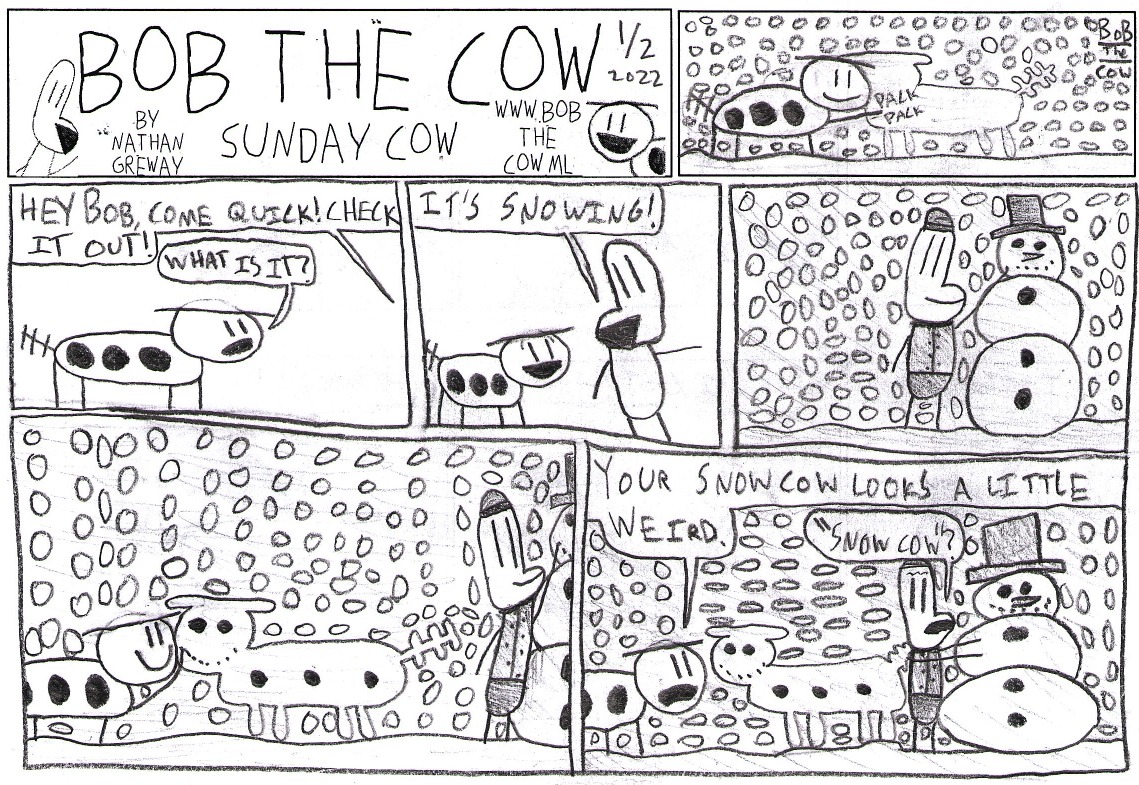 BOB THE COW
1/2
2022
BY
NATHAN
GREWAY
SUNDAY COW
WWW.BOB
THE
COW.ML
BOB
THE
COW
PACK
PACK
HEY BOB, COME QUICK! CHECK
IT OUT!
WHAT IS IT?
IT'S SNOWING!
YOUR SNOWCOW LOOKS A LITTLE
WEIRD.
"SNOW COW"?